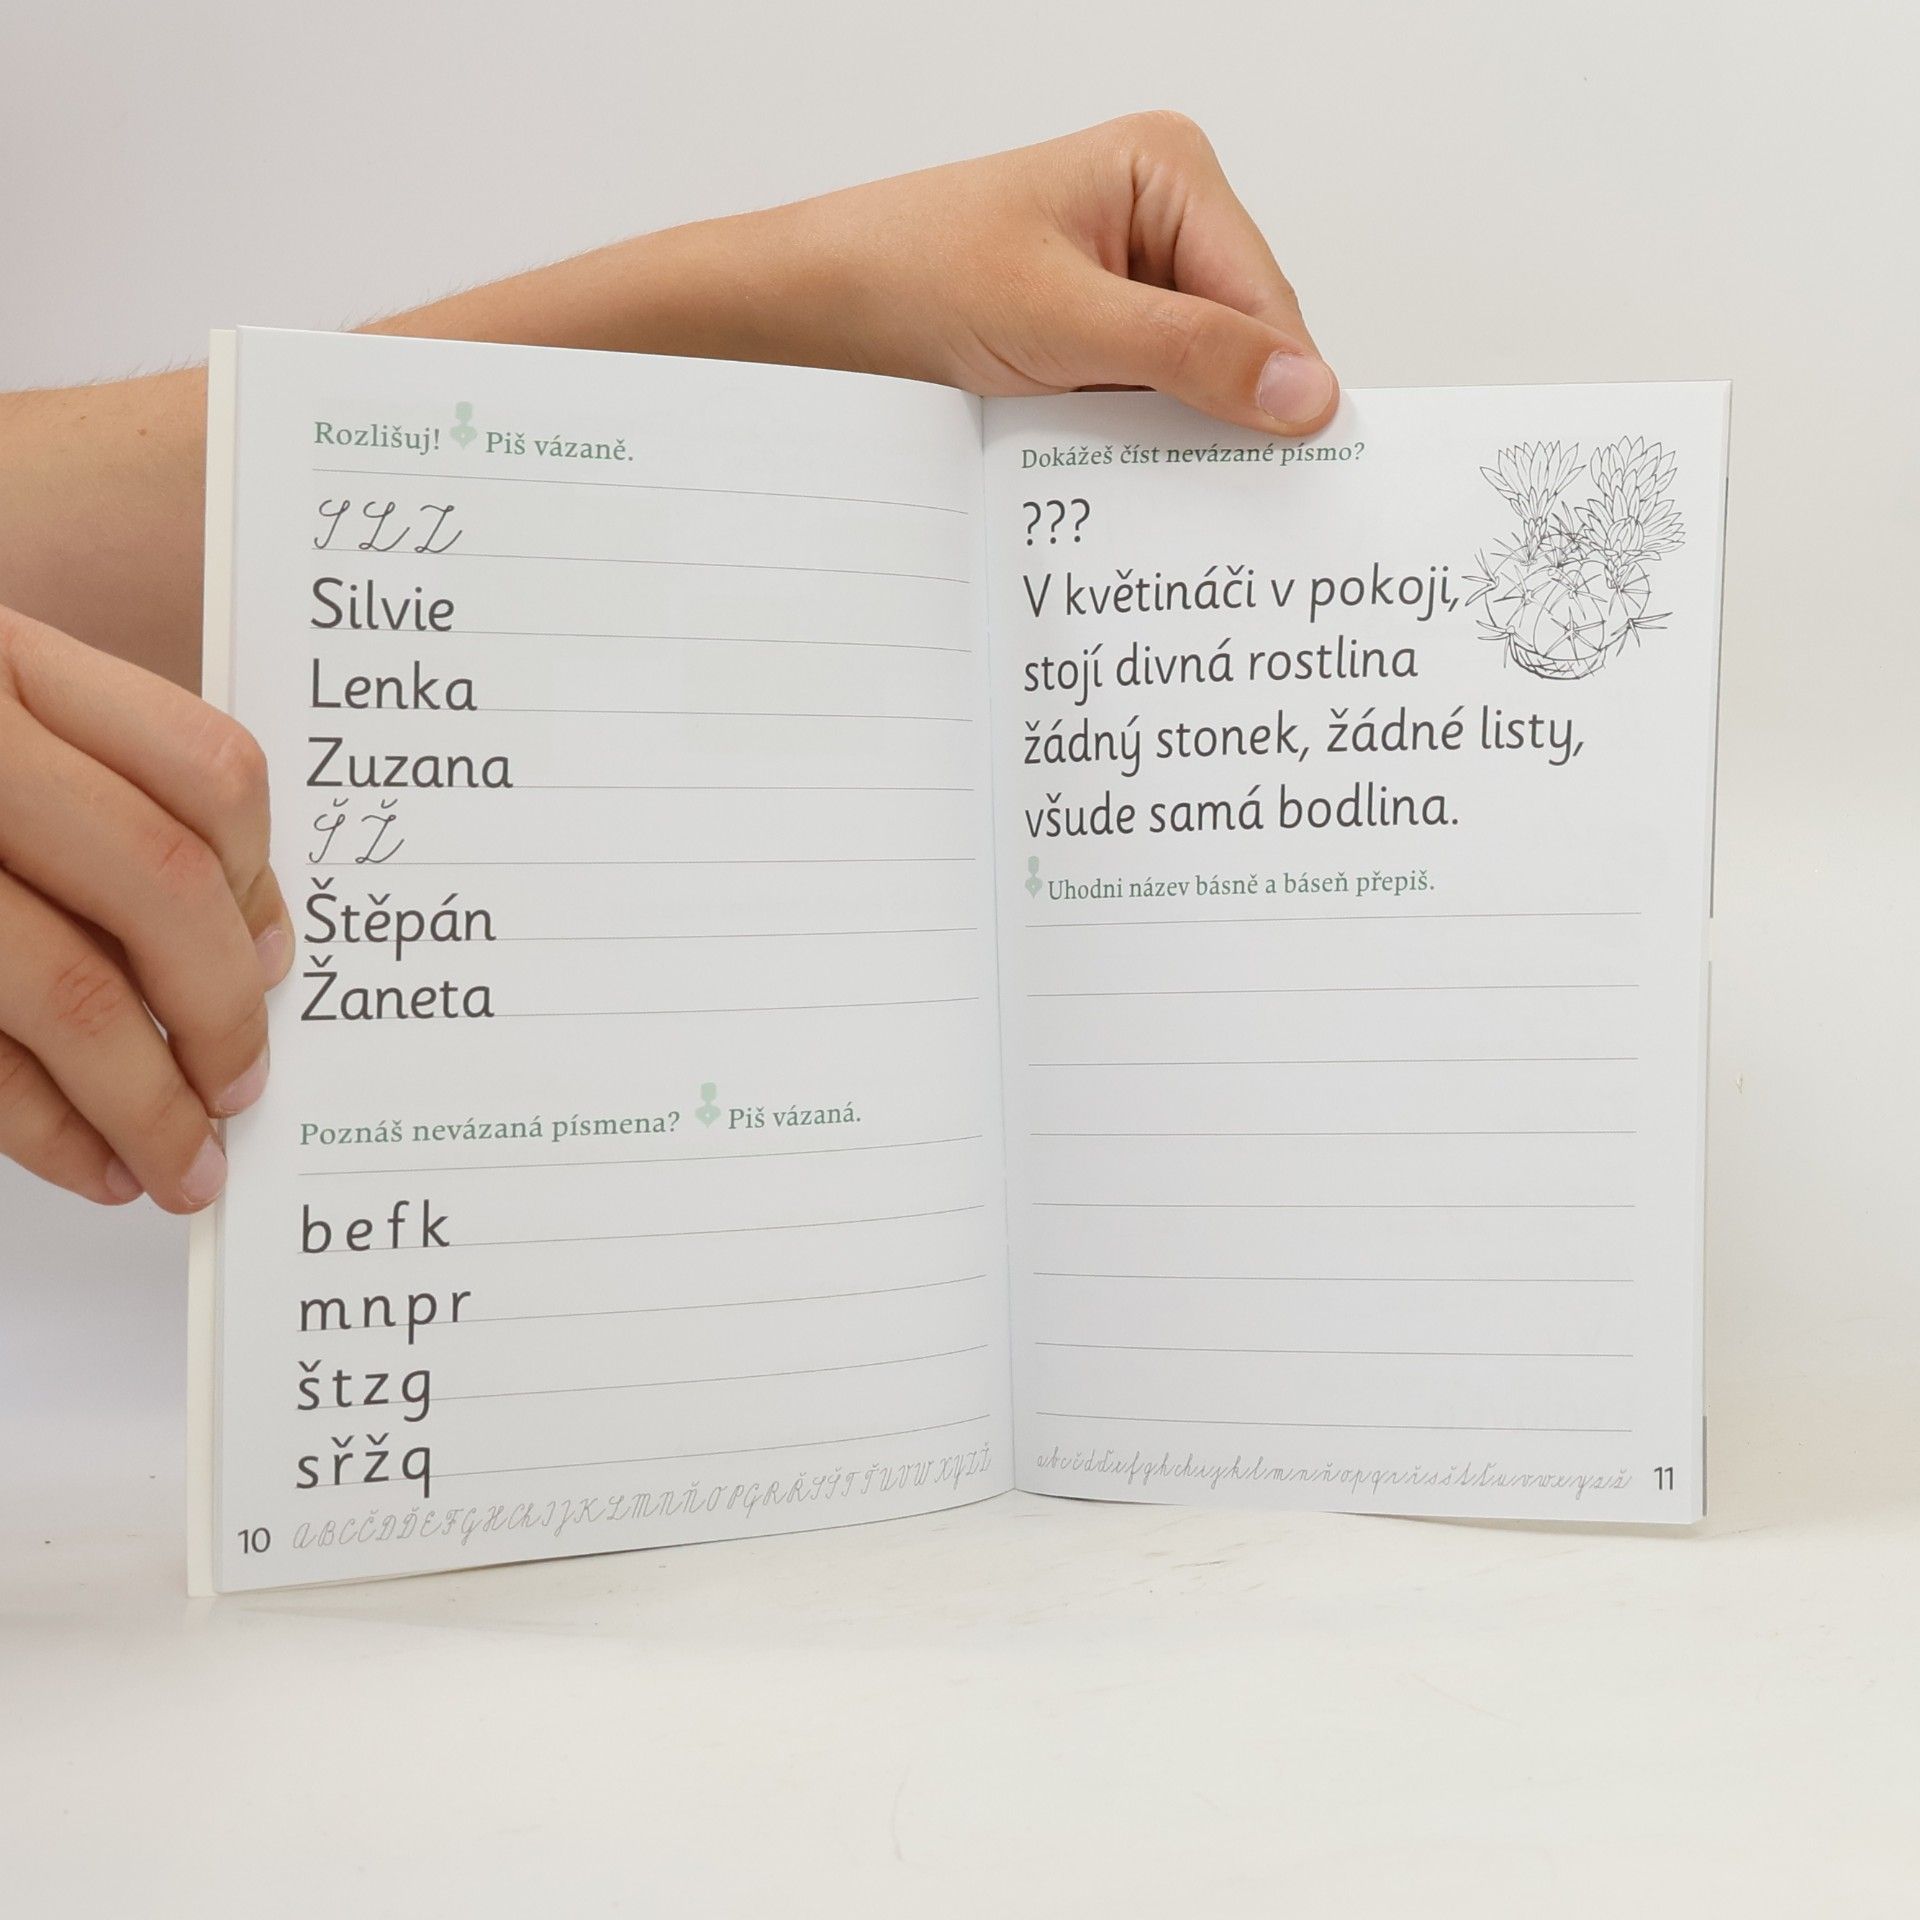 Rozlišuj! Piš vázaně.
S L Z
Silvie
Lenka
Zuzana
Š Ž
Štěpán
Žaneta
Poznáš nevázaná písmena? Piš vázaná.
b e f k
m n p r
š t z g
s ř ž q
10 A B C Č D Ď E F G H Ch I J K L M N Ň O P Q R Ř S Š T Ť U V W X Y Z Ž
Dokážeš číst nevázané písmo?
???
V květináči v pokoji,
stojí divná rostlina
žádný stonek, žádné listy,
všude samá bodlina.
Uhodni název básně a báseň přepiš.
a b c č d ď e f g h ch i j k l m n ň o p q r ř s š t ť u v w x y z ž 11